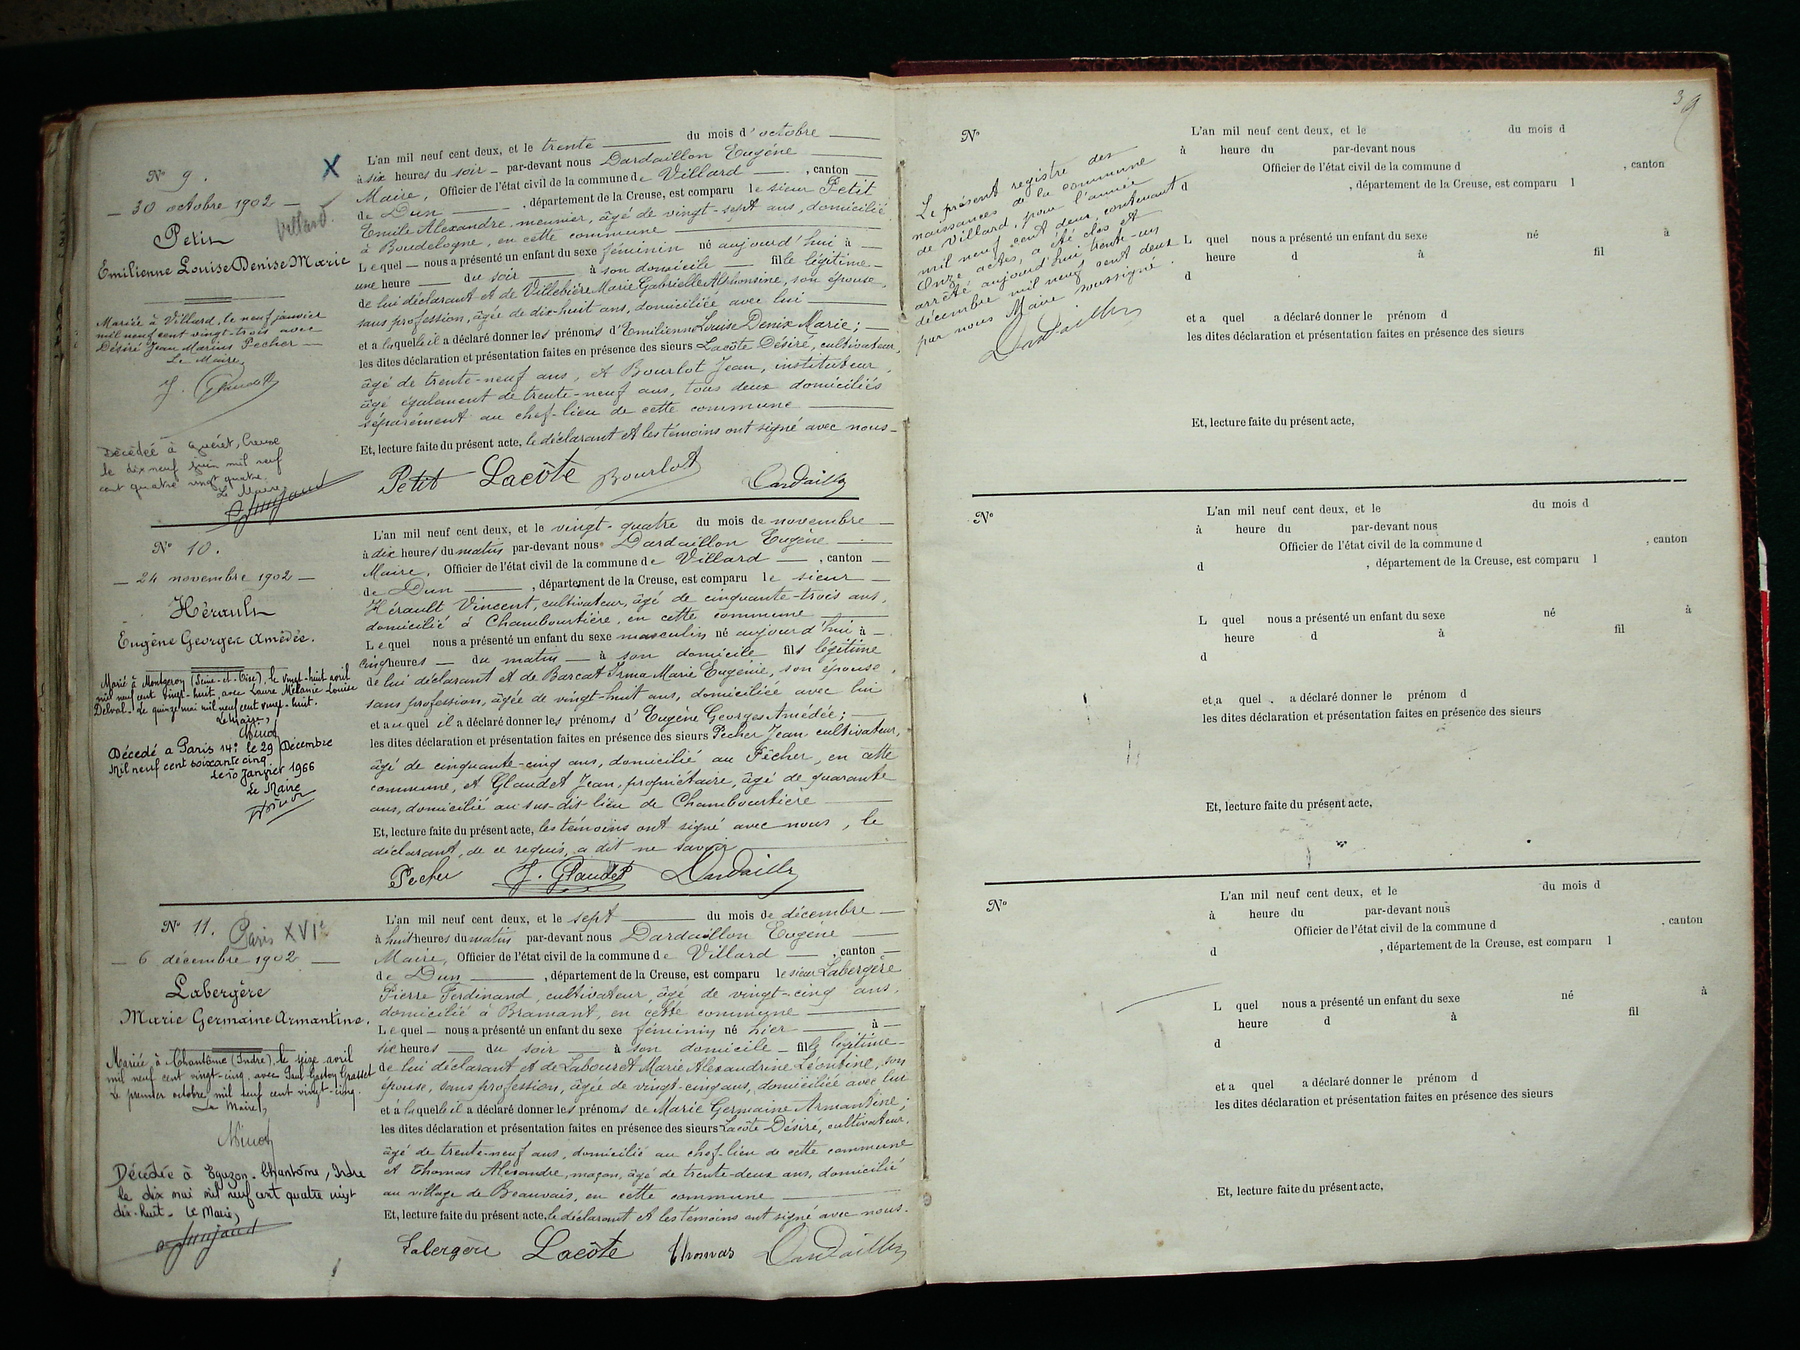 N° 9.
— 30 octobre 1902 —
Villard
Petit
Emilienne Louise Denise Marie
Mariée à Villard, le neuf janvier
mil neuf cent vingt-trois avec
Désiré Jean Marius Pecher —
Le Maire,
J. Glaudet
Décédée à Guéret, Creuse
le dix neuf juin mil neuf
cent quatre vingt quatre.
Le Maire
L'an mil neuf cent deux, et le trente — du mois d'octobre —
à six heures du soir — par-devant nous Dardaillon Eugène —
Maire, Officier de l'état civil de la commune de Villard —, canton —
de Dun —, département de la Creuse, est comparu le sieur Petit
Emile Alexandre, meunier, âgé de vingt-sept ans, domicilié
à Boudelogne, en cette commune —
Lequel — nous a présenté un enfant du sexe féminin né aujourd'hui à —
une heure — du soir — à son domicile — fille légitime —
de lui déclarant et de Villebière Marie Gabrielle Alphonsine, son épouse,
sans profession, âgée de dix-huit ans, domiciliée avec lui —
et a laquelle il a déclaré donner les prénoms d'Emilienne Louise Denise Marie; —
les dites déclaration et présentation faites en présence des sieurs Lacôte Désiré, cultivateur,
âgé de trente-neuf ans, et Bourlot Jean, instituteur,
âgé également de trente-neuf ans, tous deux domiciliés
séparément au chef-lieu de cette commune —
Et, lecture faite du présent acte, le déclarant et les témoins ont signé avec nous —
Petit Lacôte Bourlot Dardaillon
N° 10.
— 24 novembre 1902 —
Hérault
Eugène Georges Amédée.
Marié à Montgeron (Seine-et-Oise), le vingt-huit avril
mil neuf cent vingt-huit, avec Laure Mélanie Louise
Delval. Le quinze mai mil neuf cent vingt-huit.
Le Maire,
Décédé a Paris 14e le 29 Décembre
Mil neuf cent soixante cinq
le 10 Janvier 1966
Le Maire
L'an mil neuf cent deux, et le vingt-quatre du mois de novembre —
à dix heures du matin par-devant nous Dardaillon Eugène —
Maire, Officier de l'état civil de la commune de Villard —, canton —
de Dun —, département de la Creuse, est comparu le sieur —
Hérault Vincent, cultivateur, âgé de cinquante-trois ans,
domicilié à Chambourtière, en cette commune —
Lequel nous a présenté un enfant du sexe masculin né aujourd'hui à —
cinq heures — du matin — à son domicile fils légitime
de lui déclarant et de Barcat Irma Marie Eugénie, son épouse,
sans profession, âgée de vingt-huit ans, domiciliée avec lui
et auquel il a déclaré donner les prénoms d'Eugène Georges Amédée; —
les dites déclaration et présentation faites en présence des sieurs Pecher Jean cultivateur,
âgé de cinquante-cinq ans, domicilié au Pécher, en cette
commune, et Glaudet Jean, propriétaire, âgé de quarante
ans, domicilié au sus-dit lieu de Chambourtière —
Et, lecture faite du présent acte, les témoins ont signé avec nous, le
déclarant, de ce requis, a dit ne savoir —
Pecher J. Glaudet Dardaillon
N° 11. Paris XVIe
— 6 décembre 1902 —
Labergère
Marie Germaine Armantine.
Mariée à Chantôme (Indre), le seize avril
mil neuf cent vingt-cinq, avec Paul Gaston Grasset
Le premier octobre mil neuf cent vingt-cinq.
Le Maire,
Décédée à Eguzon-Chantôme, Indre
le dix mai mil neuf cent quatre vingt
dix-huit. Le Maire,
L'an mil neuf cent deux, et le sept — du mois de décembre —
à huit heures du matin par-devant nous Dardaillon Eugène —
Maire, Officier de l'état civil de la commune de Villard —, canton —
de Dun —, département de la Creuse, est comparu le sieur Labergère
Pierre Ferdinand, cultivateur, âgé de vingt-cinq ans,
domicilié à Bramant, en cette commune —
Lequel — nous a présenté un enfant du sexe féminin né hier — à —
six heures — du soir — à son domicile — fille légitime —
de lui déclarant et de Labouret Marie Alexandrine Léontine, son
épouse, sans profession, âgée de vingt-cinq ans, domiciliée avec lui
et à laquelle il a déclaré donner les prénoms de Marie Germaine Armantine;
les dites déclaration et présentation faites en présence des sieurs Lacôte Désiré, cultivateur,
âgé de trente-neuf ans, domicilié au chef-lieu de cette commune
et Thomas Alexandre, maçon, âgé de trente-deux ans, domicilié
au village de Beauvais, en cette commune —
Et, lecture faite du présent acte, le déclarant et les témoins ont signé avec nous.
Labergère Lacôte Thomas Dardaillon
39
N°
Le présent registre des
naissances de la commune
de Villard, pour l'année
mil neuf cent deux, contenant
Onze actes, a été clos et
arrêté aujourd'hui trente-un
décembre mil neuf cent deux
par nous Maire soussigné.
Dardaillon
L'an mil neuf cent deux, et le du mois d
à heure du par-devant nous
Officier de l'état civil de la commune d , canton
d , département de la Creuse, est comparu l
L quel nous a présenté un enfant du sexe né à
heure d à fil
d
et a quel a déclaré donner le prénom d
les dites déclaration et présentation faites en présence des sieurs
Et, lecture faite du présent acte,
N°
L'an mil neuf cent deux, et le du mois d
à heure du par-devant nous
Officier de l'état civil de la commune d , canton
d , département de la Creuse, est comparu l
L quel nous a présenté un enfant du sexe né à
heure d à fil
d
et a quel a déclaré donner le prénom d
les dites déclaration et présentation faites en présence des sieurs
Et, lecture faite du présent acte,
N°
L'an mil neuf cent deux, et le du mois d
à heure du par-devant nous
Officier de l'état civil de la commune d , canton
d , département de la Creuse, est comparu l
L quel nous a présenté un enfant du sexe né à
heure d à fil
d
et a quel a déclaré donner le prénom d
les dites déclaration et présentation faites en présence des sieurs
Et, lecture faite du présent acte,